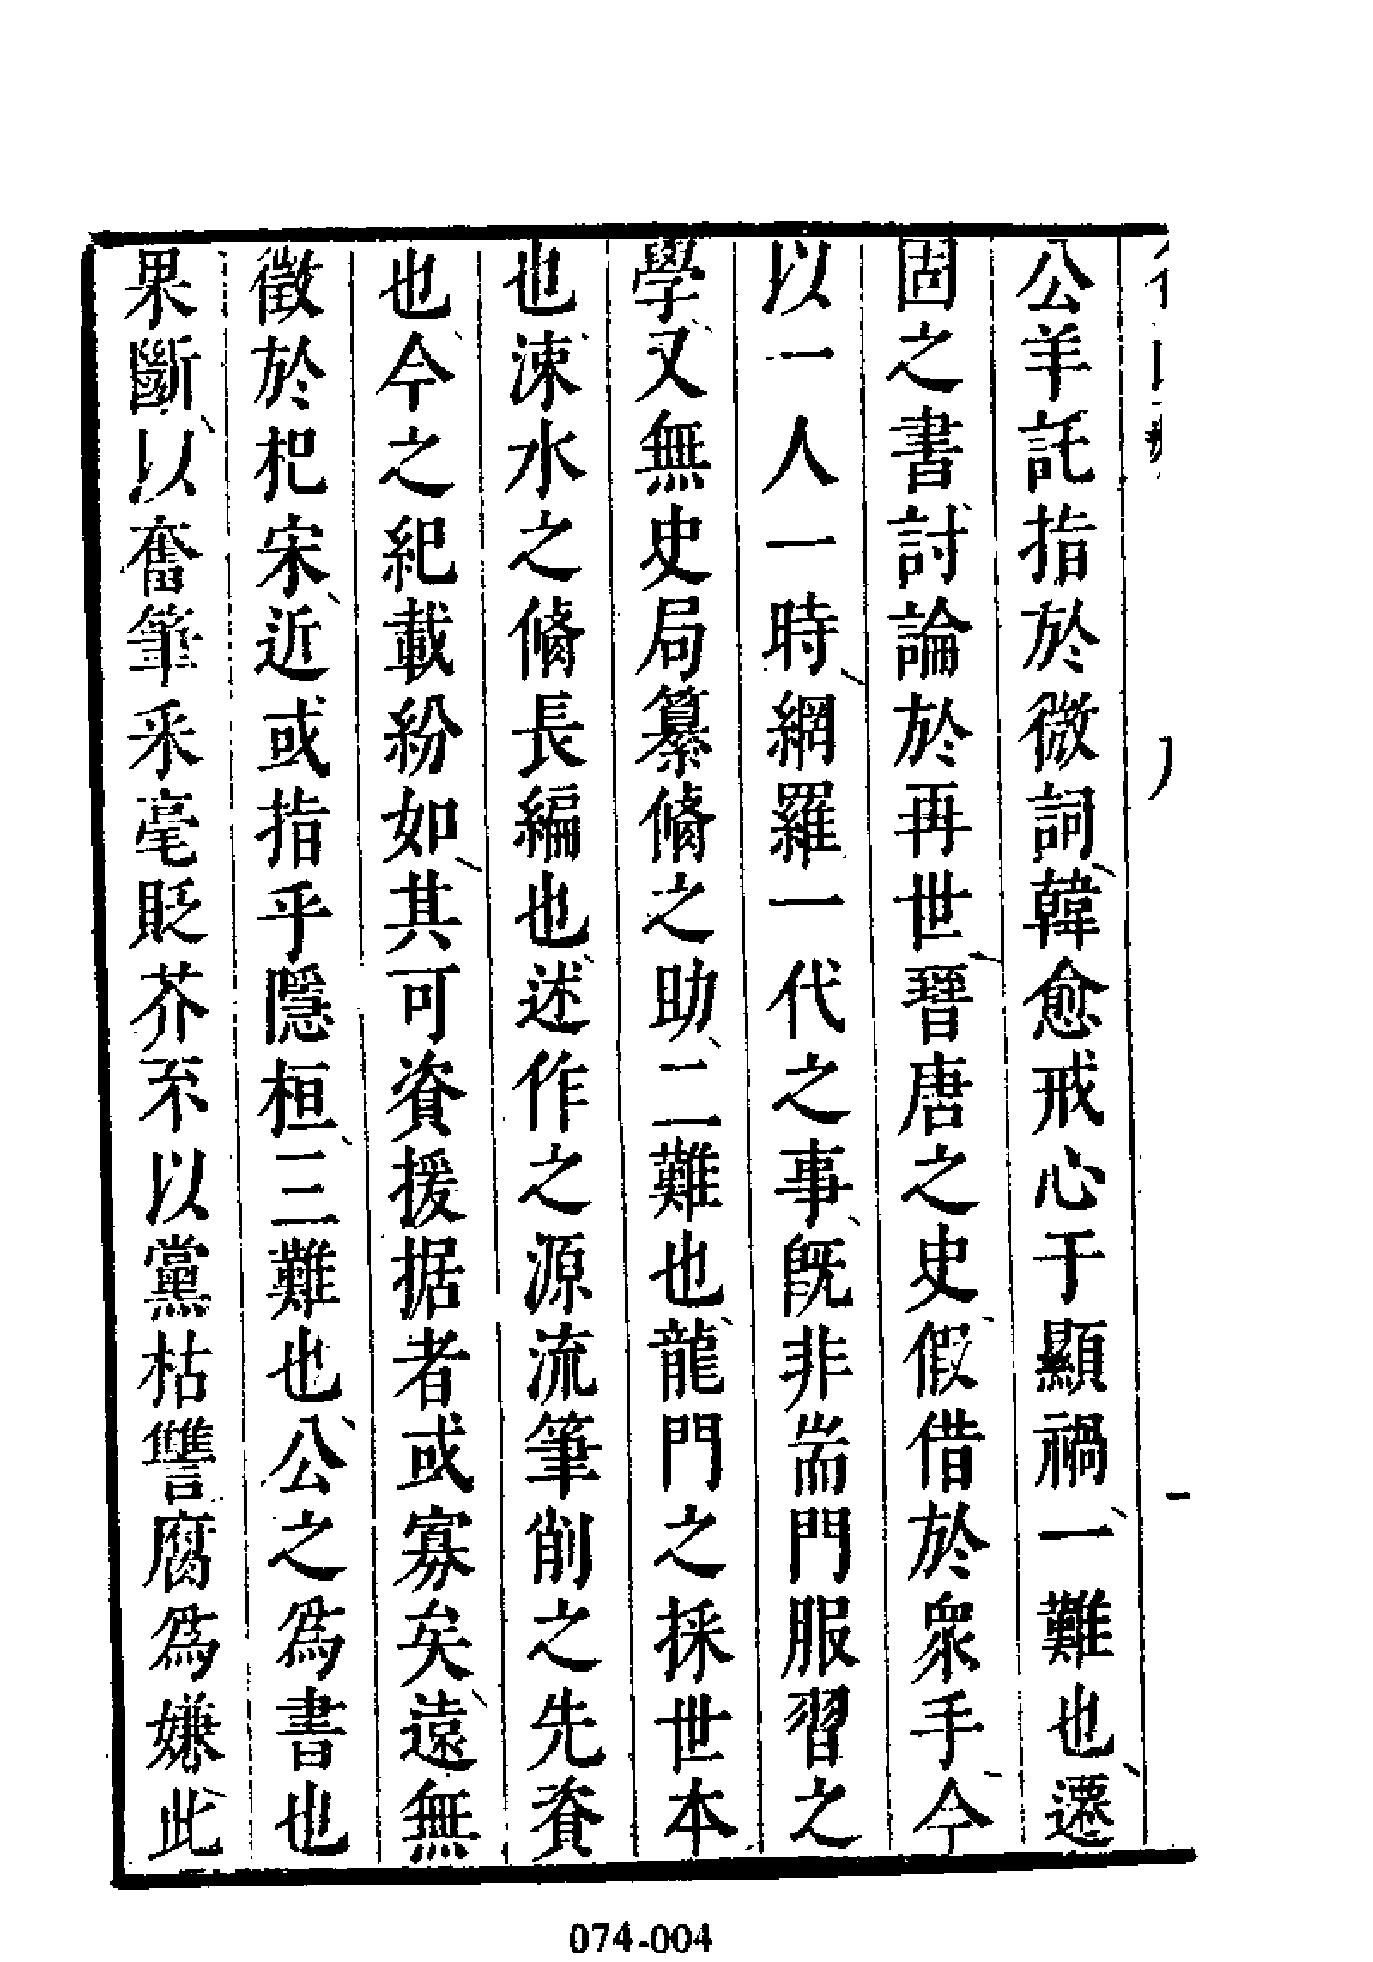 公羊託指於微詞韓愈戒心于顯禍一難也遷
固之書討論於再世晉唐之史假借於衆手今
以一人一時網羅一代之事旣非耑門服習之
學又無史局纂脩之助二難也龍門之採世本
也涑水之脩長編也述作之源流筆削之先資
也今之紀載紛如其可資援据者或寡矣遠無
徵於杞宋近或指乎隱桓三難也公之爲書也
果斷以奮筆采毫貶芥不以黨枯讐腐爲嫌此
074-004